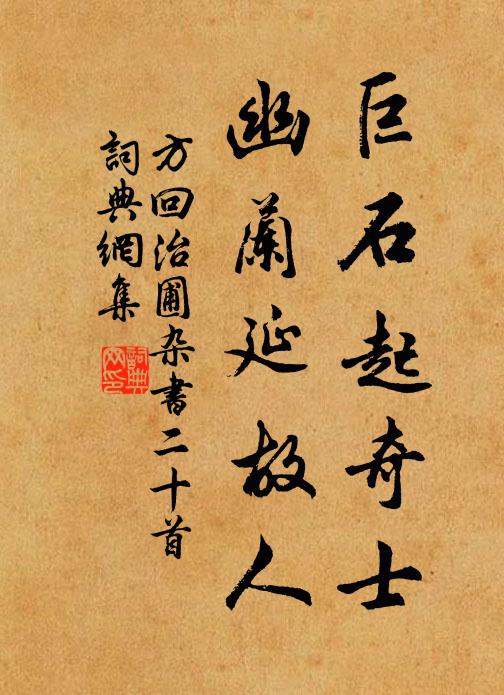 巨石起奇士
幽蘭延故人
方回治圃杂書二十首
詞典網集
詞典网印